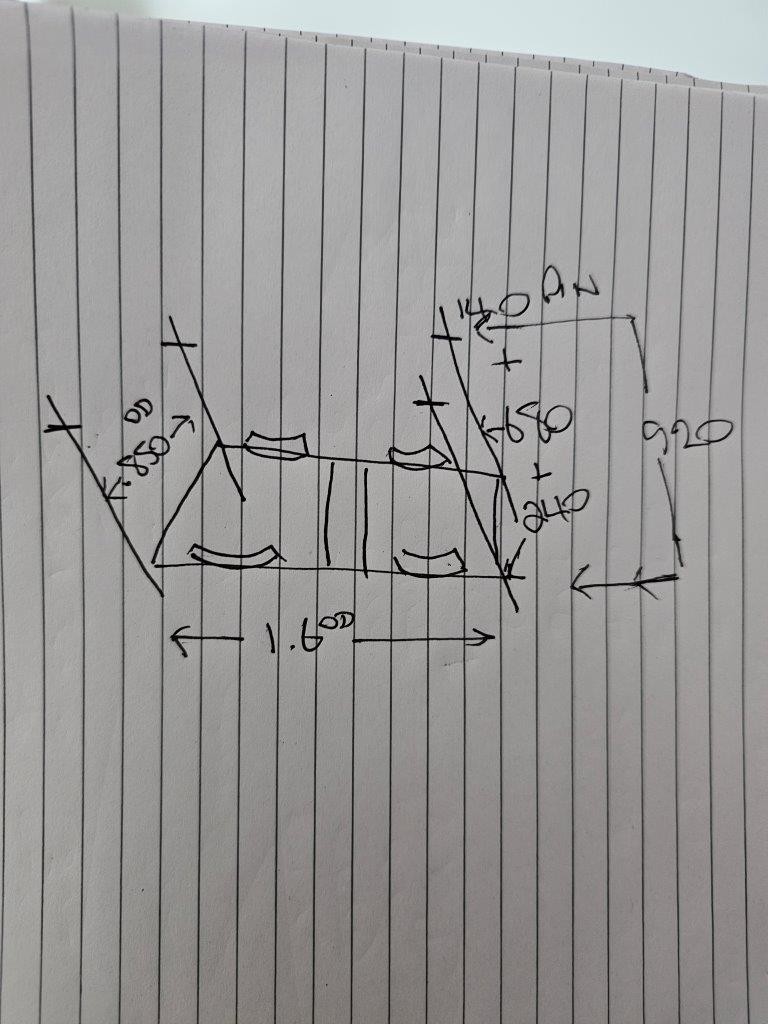 140
+
850 OD
680
920
+
240
1.6 OD